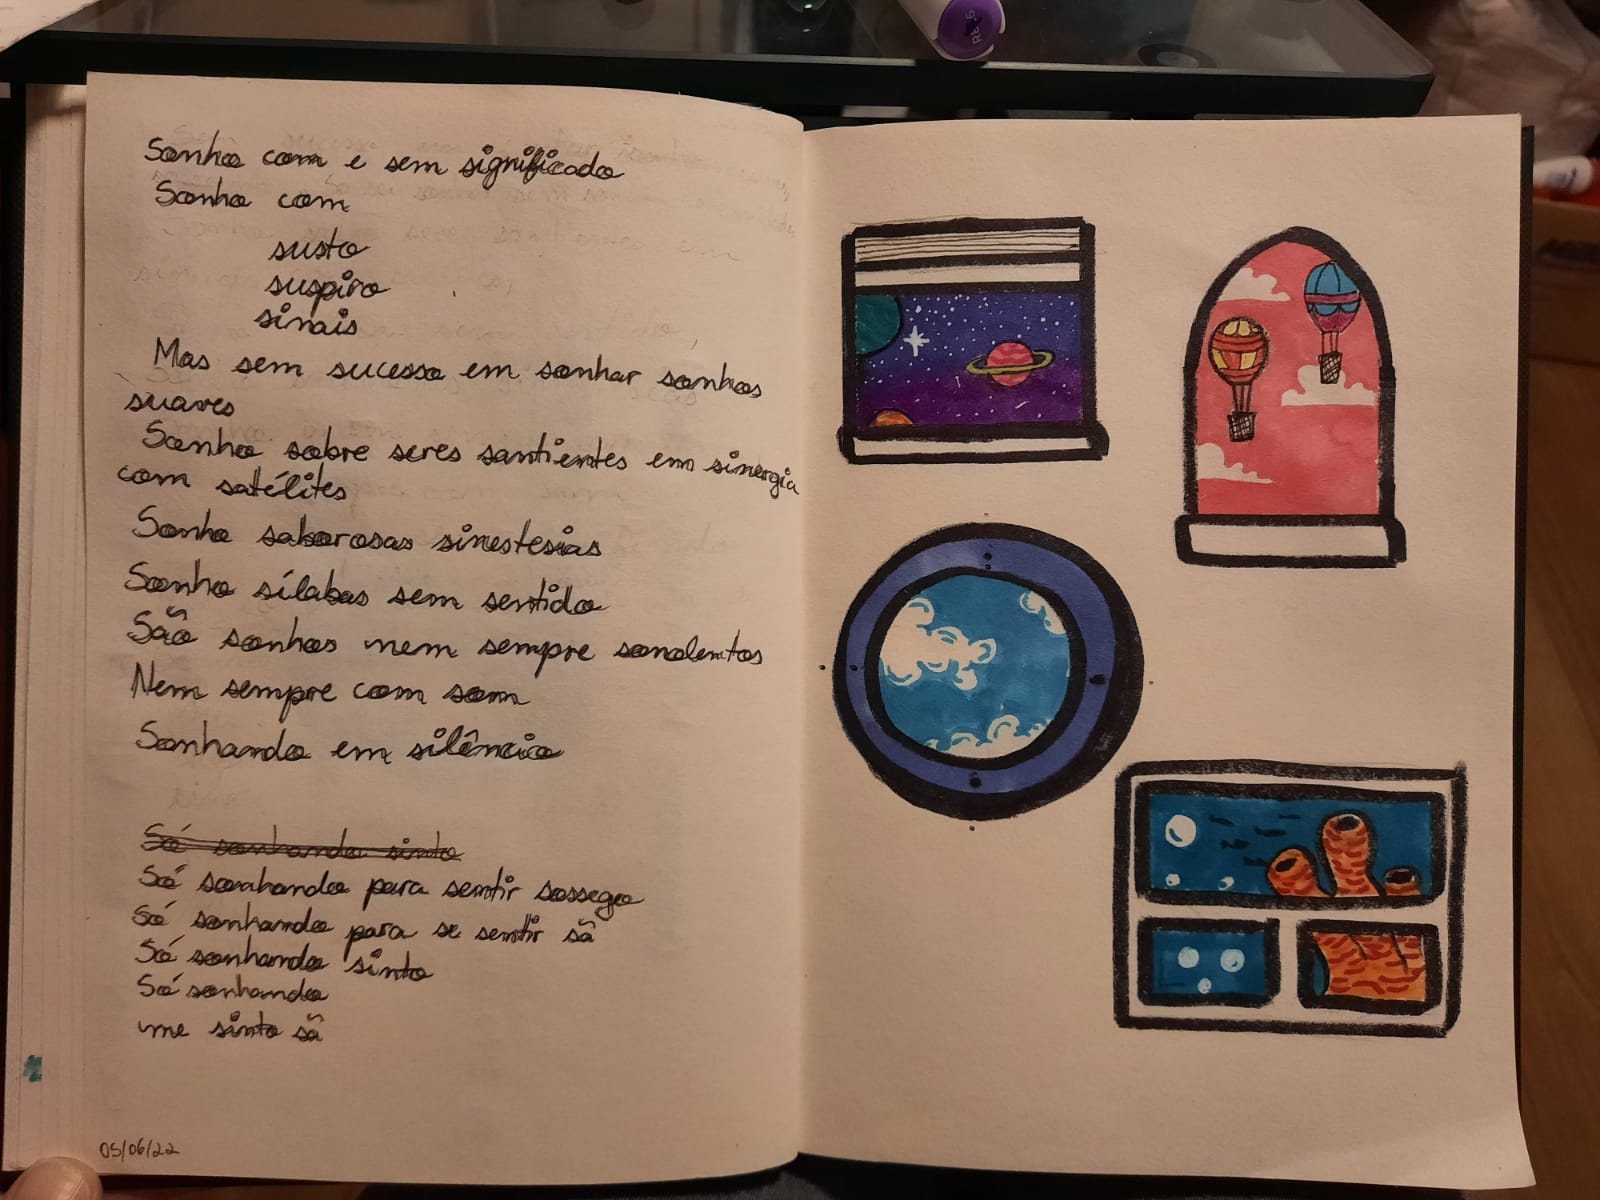 Sonho com e sem significado
Sonho com
susto
suspiro
sinais
Mas sem sucesso em sonhar sonhos
suaves
Sonho sobre seres santientes em sinergia
com satélites
Sonho saborosas sinestesias
Sonho sílabas sem sentido
São sonhos nem sempre sonolentos
Nem sempre com som
Sonhando em silêncio
Só sonhando sinto
Só sonhando para sentir sossego
Só sonhando para se sentir sã
Só sonhando sinto
Só sonhando
me sinto sã
05/06/22